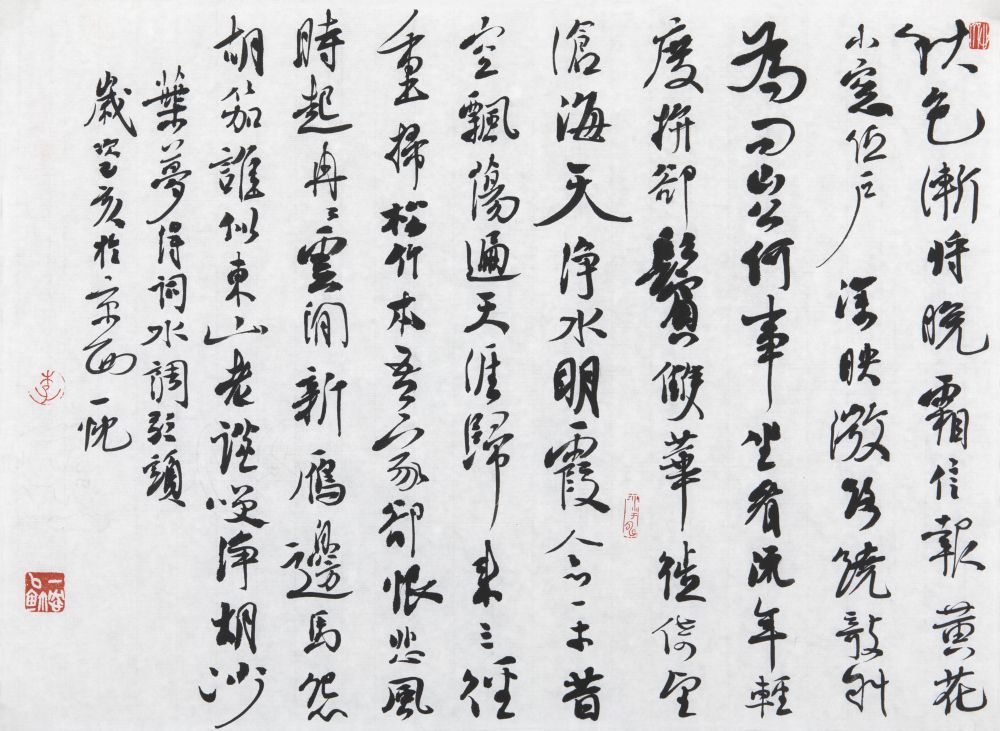 秋色漸將晚霜信報黄花
小窓低户深映微路繞敧斜
為問山公何事坐看流年輕
度拚卻鬢雙華徙倚望
滄海天淨水明霞念平昔
空飄蕩遍天涯歸來三徑
重掃松竹本吾家卻恨悲風
時起冉々雲間新雁邊馬怨
胡笳誰似東山老談笑淨胡沙
葉夢得詞水調歌頭
歲亥於京西一忱
李